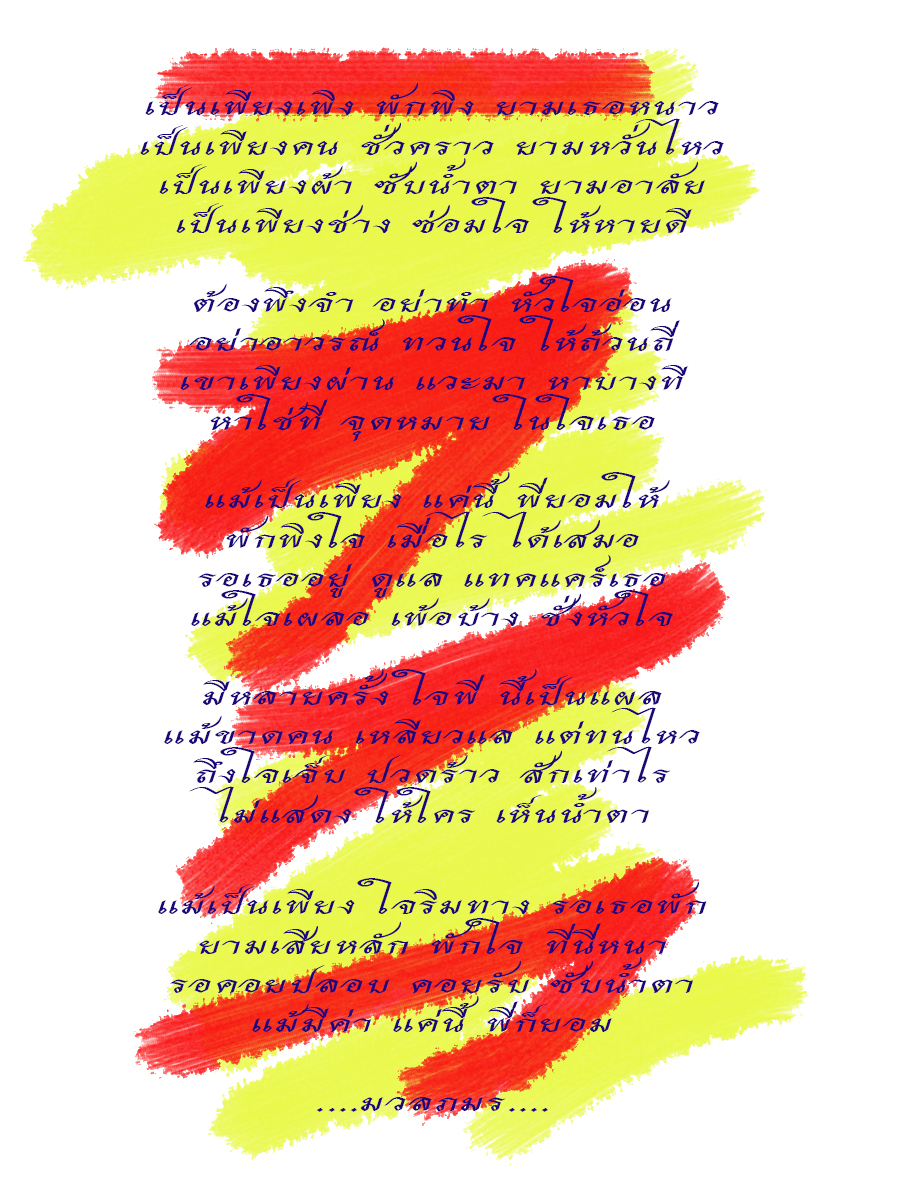 เป็นเพียงเพิง พักพิง ยามเธอหนาว
เป็นเพียงคน ชั่วคราว ยามหวั่นไหว
เป็นเพียงผ้า ซับน้ำตา ยามอาลัย
เป็นเพียงช่าง ซ่อมใจ ให้หายดี
ต้องพึงจำ อย่าทำ หัวใจอ่อน
อย่าอาวรณ์ ทวนใจ ให้ถ้วนถี่
เขาเพียงผ่าน แวะมา หาบางที
หาใช่ที่ จุดหมาย ในใจเธอ
แม้เป็นเพียง แค่นี้ พี่ยอมให้
พักพิงใจ เมื่อไร ได้เสมอ
รอเธออยู่ ดูแล แทคแคร์เธอ
แม้ใจเผลอ เพ้อบ้าง ชั่งหัวใจ
มีหลายครั้ง ใจพี่ นี้เป็นแผล
แม้ขาดคน เหลียวแล แต่ทนไหว
ถึงใจเจ็บ ปวดร้าว สักเท่าไร
ไม่แสดง ให้ใคร เห็นน้ำตา
แม้เป็นเพียง ใจริมทาง รอเธอพัก
ยามเสียหลัก พักใจ ที่นี่หนา
รอคอยปลอบ คอยรับ ซับน้ำตา
แม้มีค่า แค่นี้ พี่ก็ยอม
....มวลภมร....